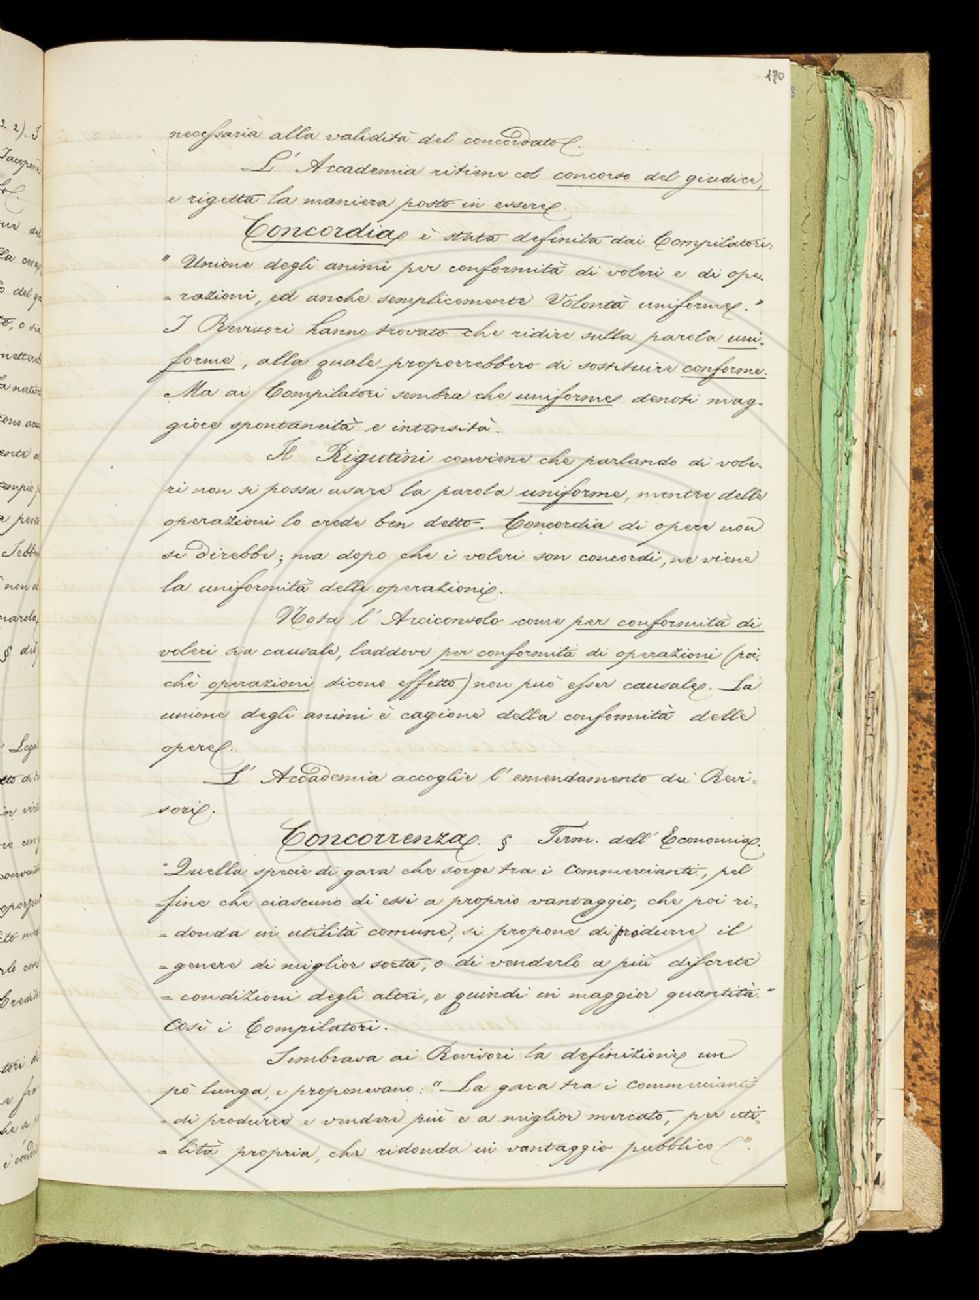 170
necessaria alla validità del concordato.
L'Accademia ritiene col concorso del giudice,
e rigetta la maniera posto in essere.
Concordia è stata definita dai Compilatori:
" Unione degli animi per conformità di voleri e di ope-
= razioni, ed anche semplicemente Volontà uniforme."
I Revisori hanno trovato che ridire sulla parola uni-
forme, alla quale proporrebbero di sostituire conforme.
Ma ai Compilatori sembra che uniforme denoti mag-
giore spontaneità e intensità.
Il Rigutini conviene che parlando di vole-
ri non si possa usare la parola uniforme, mentre delle
operazioni lo crede ben detto. Concordia di opere non
si direbbe; ma dopo che i voleri son concordi, ne viene
la uniformità delle operazioni.
Nota l'Arciconsolo come per conformità di
voleri sia causale, laddove per conformità di operazioni (poi-
chè operazioni dicono effetto) non può esser causale. La
unione degli animi è cagione della conformità delle
opere.
L'Accademia accoglie l'emendamento dei Revi-
sori.
Concorrenza. § Term. dell'Economia.
"Quella specie di gara che sorge tra i commercianti, pel
=fine che ciascuno di essi a proprio vantaggio, che poi ri-
=donda in utilità comune, si propone di produrre il
=genere di miglior sorta, o di venderlo a più discrete
=condizioni degli altri, e quindi in maggior quantità."
Così i Compilatori.
Sembrava ai Revisori la definizione un
pò lunga e proponevano: "La gara tra i commercianti
=di produrre e vendere più e a miglior mercato, per uti-
=lità propria, che ridonda in vantaggio pubblico".